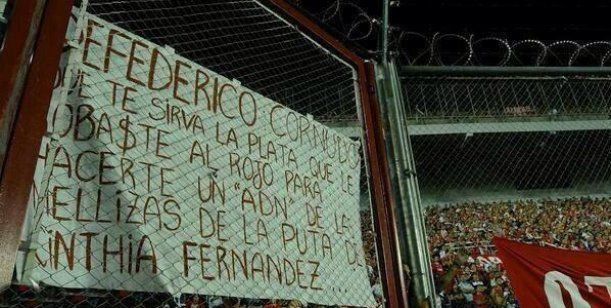 DEFEDERICO CORNUDO
QUE TE SIRVA LA PLATA QUE LE
ROBA$TE AL ROJO PARA
HACERTE UN "ADN" DE LAS
MELLIZAS DE LA PUTA DE
CINTHIA FERNANDEZ...